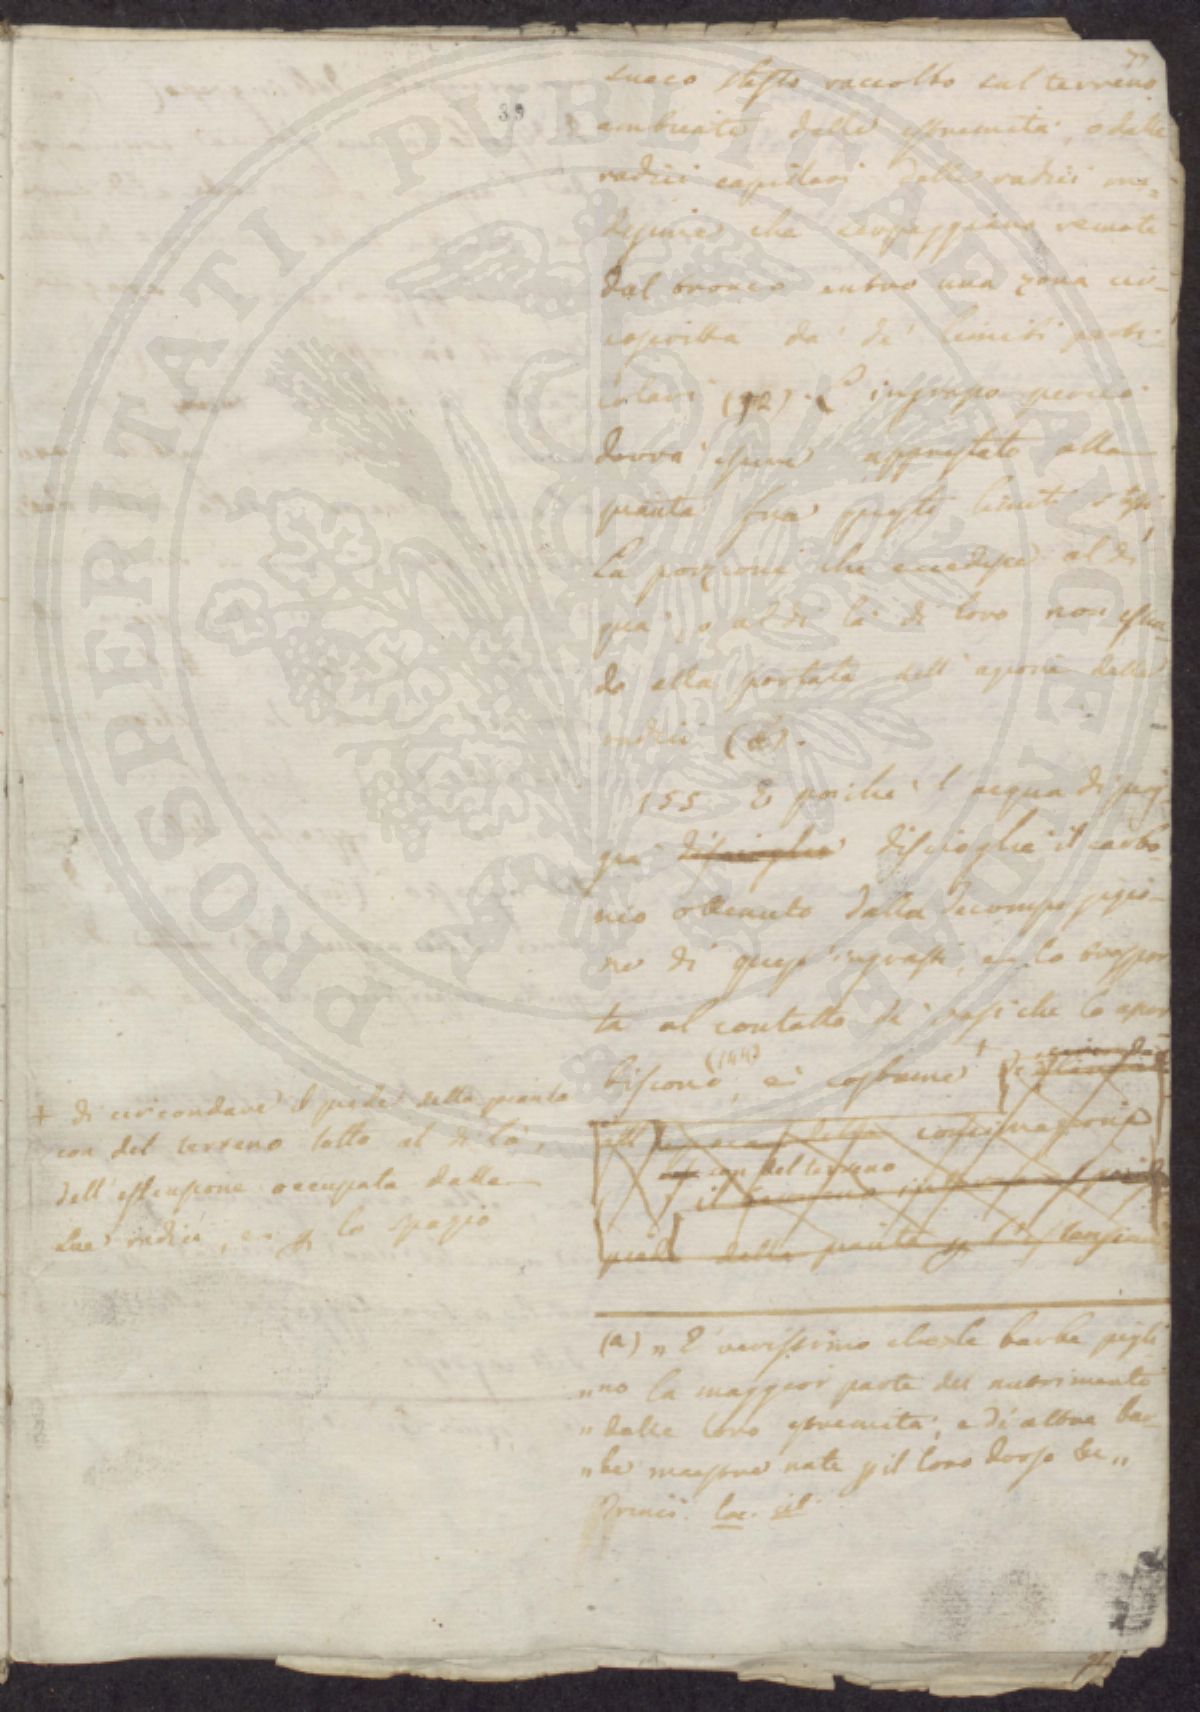 77
39
suaco stesso raccolto sul terreno
dalle estremità, o dalle
radici capillari delle radici me-
desime che serpeggiano remote
dal tronco entro una zona cir-
coscritta da' de' limiti parti-
colari (92). L'ingrasso perciò
dovrà essere apprestato alla
pianta fra questi limiti
La porzione che eccedesse al di
qua, o al di là di loro non essen-
do alla portata dell'azione delle
radici (a).
155. E poichè l'acqua di piog-
gia discioglie discioglie il carbo-
nio ottenuto dalla decomposizio-
ne di quest'ingrassi, e lo traspor
ta al contatto de' vasi che lo assor
biscono (144), è costume +
della concimazione
con del terreno
il terreno
piede della pianta p l'estensione
+ di circondare il piede della pianta
con del terreno tolto al di là,
dell'estensione occupata dalle
sue radici, e p lo spazio
(a) „ È verissimo che le barbe pigli
„ no la maggior parte del nutrimento
„ dalle loro estremità, e di altre bar-
„ be maestre nate p il loro dorso &c „
loc. cit.